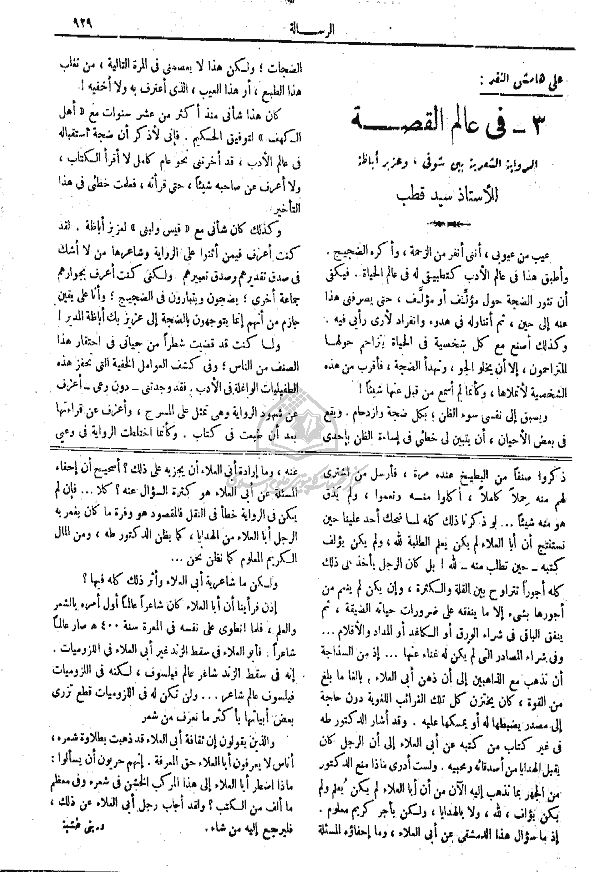 ٩٢٩
الرسالة
على هامش النقد :
٣ - فى عالم القصة
الرواية الشعرية بين شوقى ، وعزيز أباظة
للأستاذ سيد قطب
عيب من عيوبى ، أننى أنفر من الزحمة ، وأكره الضجيج .
وأطبق هذا فى عالم الأدب كتطبيق له فى عالم الحياة . فيكفى
أن تثور الضجة حول مؤلَّف أو مؤلِّف ، حتى يصرفنى هذا
عنه إلى حين ، ثم أتناوله فى هدوء وانفراد لأرى رأيى فيه .
وكذلك أصنع مع كل شخصية فى الحياة يتزاحم حولها
المتزاحمون ، إلا أن يخلو الجو ، وتهدأ الضجة ، فأقرب من هذه
الشخصية لأتملاها ، وكأنما لم أسمع من قبل عنها شيئاً !
ويسبق إلى نفسى سوء الظن ؛ بكل ضجة وازدحام . ويقع
فى بعض الأحيان ، أن يتبين لى خطئى فى إساءة الظن بإحدى
الضجات ؛ ولكن هذا لا يعصمنى فى المرة التالية ، من تغلب
هذا الطبع ، أو هذا العيب ، الذى أعترف به ولا أخفيه !
كان هذا شأنى منذ أكثر من عشر سنوات مع « أهل
الكهف » لتوفيق الحكيم . فإنى لأذكر أن ضجة استقباله
فى عالم الأدب ، قد أخرتنى نحو عام كامل لا أقرأ الكتاب ،
ولا أعرف عن صاحبه شيئاً ، حتى قرأته ، فعلمت خطئى فى هذا
التأخير
وكذلك كان شأنى مع « قيس ولبنى » لعزيز أباظة . لقد
كنت أعرف فيمن أثنوا على الرواية وشاعرها من لا أشك
فى صدق تقديرهم وصدق تعبيرهم ولكنى كنت أعرف بجوارهم
جماعة أخرى ؛ يضجون ويتبارون فى الضجيج ؛ وأنا على يقين
جازم من أنهم إنما يتوجهون بالضجة إلى عزيز بك أباظة المدير !
ولما كنت قد قضيت شطراً من حياتى فى احتقار هذا
الصنف من الناس ؛ وفى كشف العوامل الخفية التى تحفز هذه
الطفيليات الواغلة فى الأدب . فقد وجدتنى - دون وعى - أعزف
عن شهود الرواية وهى تمثل على المسرح ، وأعزف عن قراءتها
بعد أن طبعت فى كتاب . وكأنما اختلطت الرواية فى وعيى
ذكروا صنفاً من البطيخ عنده مرة ، فأرسل من اشترى
لهم منه حِملاً كاملاً ، أكلوا منه ونعموا ، ولم يذق
هو منه شيئاً ... لو ذكرنا ذلك كله لما ضحك أحد علينا حين
نستنتج أن أبا العلاء لم يكن يعلم الطلبة لله ، ولم يكن يؤلف
كتبه - حين تطلب منه - لله ! بل كان الرجل يأخذ على ذلك
كله أجوراً تتراوح بين القلة والكثرة ، وإن يكن لم ينعم من
أجورها بشىء إلا ما ينفقه على ضرورات حياته الضيقة ، ثم
ينفق الباقى فى شراء الورق أو الكاغد أو المداد والأقلام ...
وفى شراء المصادر التى لم يكن له غناء عنها ... إذ من السذاجة
أن نذهب مع الذاهبين إلى أن ذهن أبى العلاء ، بالغا ما بلغ
من القوة ، كان يختزن كل تلك الغرائب اللغوية دون حاجة
إلى مصدر يضبطها له أو يمسكها عليه . وقد أشار الدكتور طه
فى غير كتاب من كتبه عن أبى العلاء إلى أن الرجل كان
يقبل الهدايا من أصدقائه ومحبيه . ولست أدرى ماذا منع الدكتور
من الجهر بما نذهب إليه الآن من أن أبا العلاء لم يكن يُعلم ولم
يكن يؤلف ، لله ، ولا بالهدايا ، ولكن بأجر كريم معلوم .
إذ ما سؤال هذا الدمشقى عن أبى العلاء ، وما إحفاؤه المسئلة
عنه ، وما إرادة أبى العلاء أن يجزيه على ذلك ؟ أصحيح أن إحفاء
المسئلة عن أبى العلاء هو كثرة السؤال عنه ؟ كلا ... فإن لم
يكن فى الرواية خطأ فى النقل فالمقصود هو وفرة ما كان يغمر به
الرجل أبا العلاء من الهدايا ، كما يظن الدكتور طه ، ومن المال
الكريم المعلوم كما نظن نحن ...
ولكن ما شاعرية أبى العلاء وأثر ذلك كله فيها ؟
إذن فرأينا أن أبا العلاء كان شاعراً عالماً أول أمره بالشعر
والعلم ، فلما انطوى على نفسه فى المعرة سنة ٤٠٠ هـ صار عالماً
شاعراً . فأبو العلاء فى سقط الزند غير أبى العلاء فى اللزوميات .
إنه فى سقط الزند شاعر عالم فيلسوف ، لكنه فى اللزوميات
فيلسوف عالم شاعر ... ولن تكن له فى اللزوميات قطع تزرى
بعض أبياتها بأكثر ما نعرف من شعر
والذين يقولون إن ثقافة أبى العلاء قد ذهبت بطلاوة شعره ،
أناس لا يعرفون أبا العلاء حق المعرفة . إنهم حريون أن يسألوا :
ماذا اضطر أبا العلاء إلى هذا المركب الخشن فى شعره وفى معظم
ما ألف من الكتب ؟ ولقد أجاب رجل أبى العلاء عن ذلك ،
فليرجع إليه من شاء .
درينى خشبة